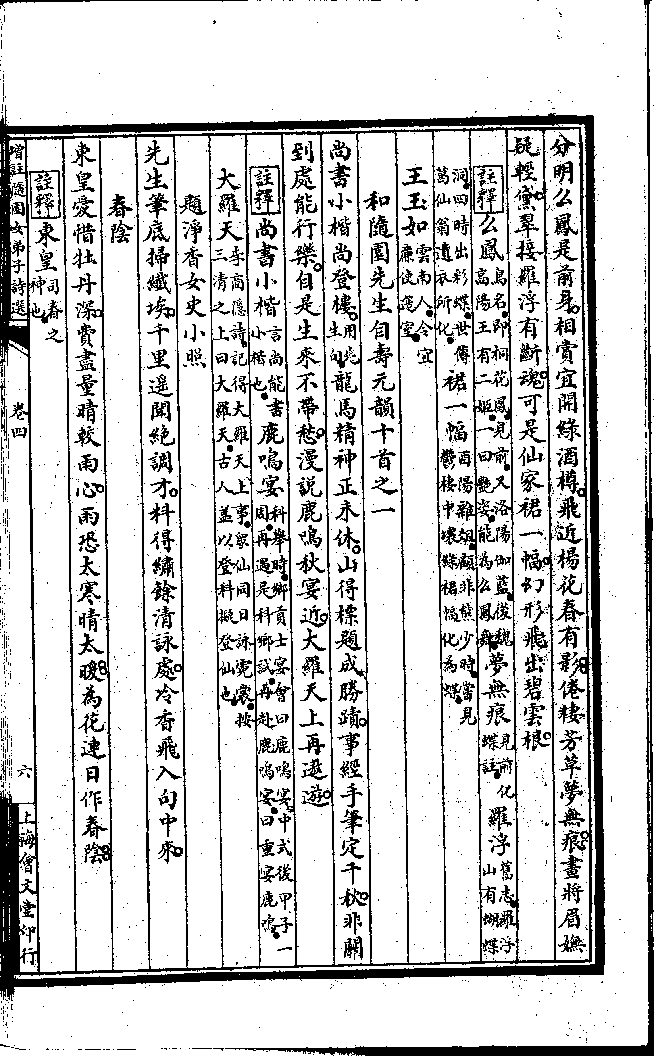 分明么鳳是前身相賞宜開綠酒樽飛近楊花春有影倦棲芳草夢無痕畫將眉嫵
疑輕黛翠接羅浮有斷魂可是仙家裙一幅幻形飛出碧雲根
註釋 么鳳鳥名即桐花鳳見前又洛陽伽藍後魏高陽王有二姬一曰艷姿能為么鳳舞 夢無痕見前化蝶註 羅浮舊志羅浮山有蝴蝶
洞四時出彩蝶世傳葛仙翁遺衣所化 裙一幅酉陽雜俎顧非熊少時嘗見鬱棲中壞綠裙幅化為蝶
王玉如雲南人令宜廉使運室
和隨園先生自壽元韻十首之一
尚書小楷尚登樓用先生句龍馬精神正未休山得標題成勝蹟事經手筆定千秋非關
到處能行樂自是生來不帶愁漫說鹿鳴秋宴近大羅天上再遨遊
註釋 尚書小楷言尚能書小楷也 鹿鳴宴科舉時鄉貢士宴會曰鹿鳴宴中式後甲子一周再遇是科鄉試再赴鹿鳴宴曰重宴鹿鳴
大羅天李商隱詩記得大羅天上事眾仙同日詠霓裳按三清之上曰大羅天古人蓋以登科擬登仙也
題淨香女史小照
先生筆底掃纖埃千里遙聞絕調才料得繡餘清詠處冷香飛入句中來
春陰
東皇愛惜牡丹深費盡量晴較雨心雨恐太寒晴太暖為花連日作春陰
註釋 東皇司春之神也
增註隨園女弟子詩選 卷四 六 上海會文堂印行